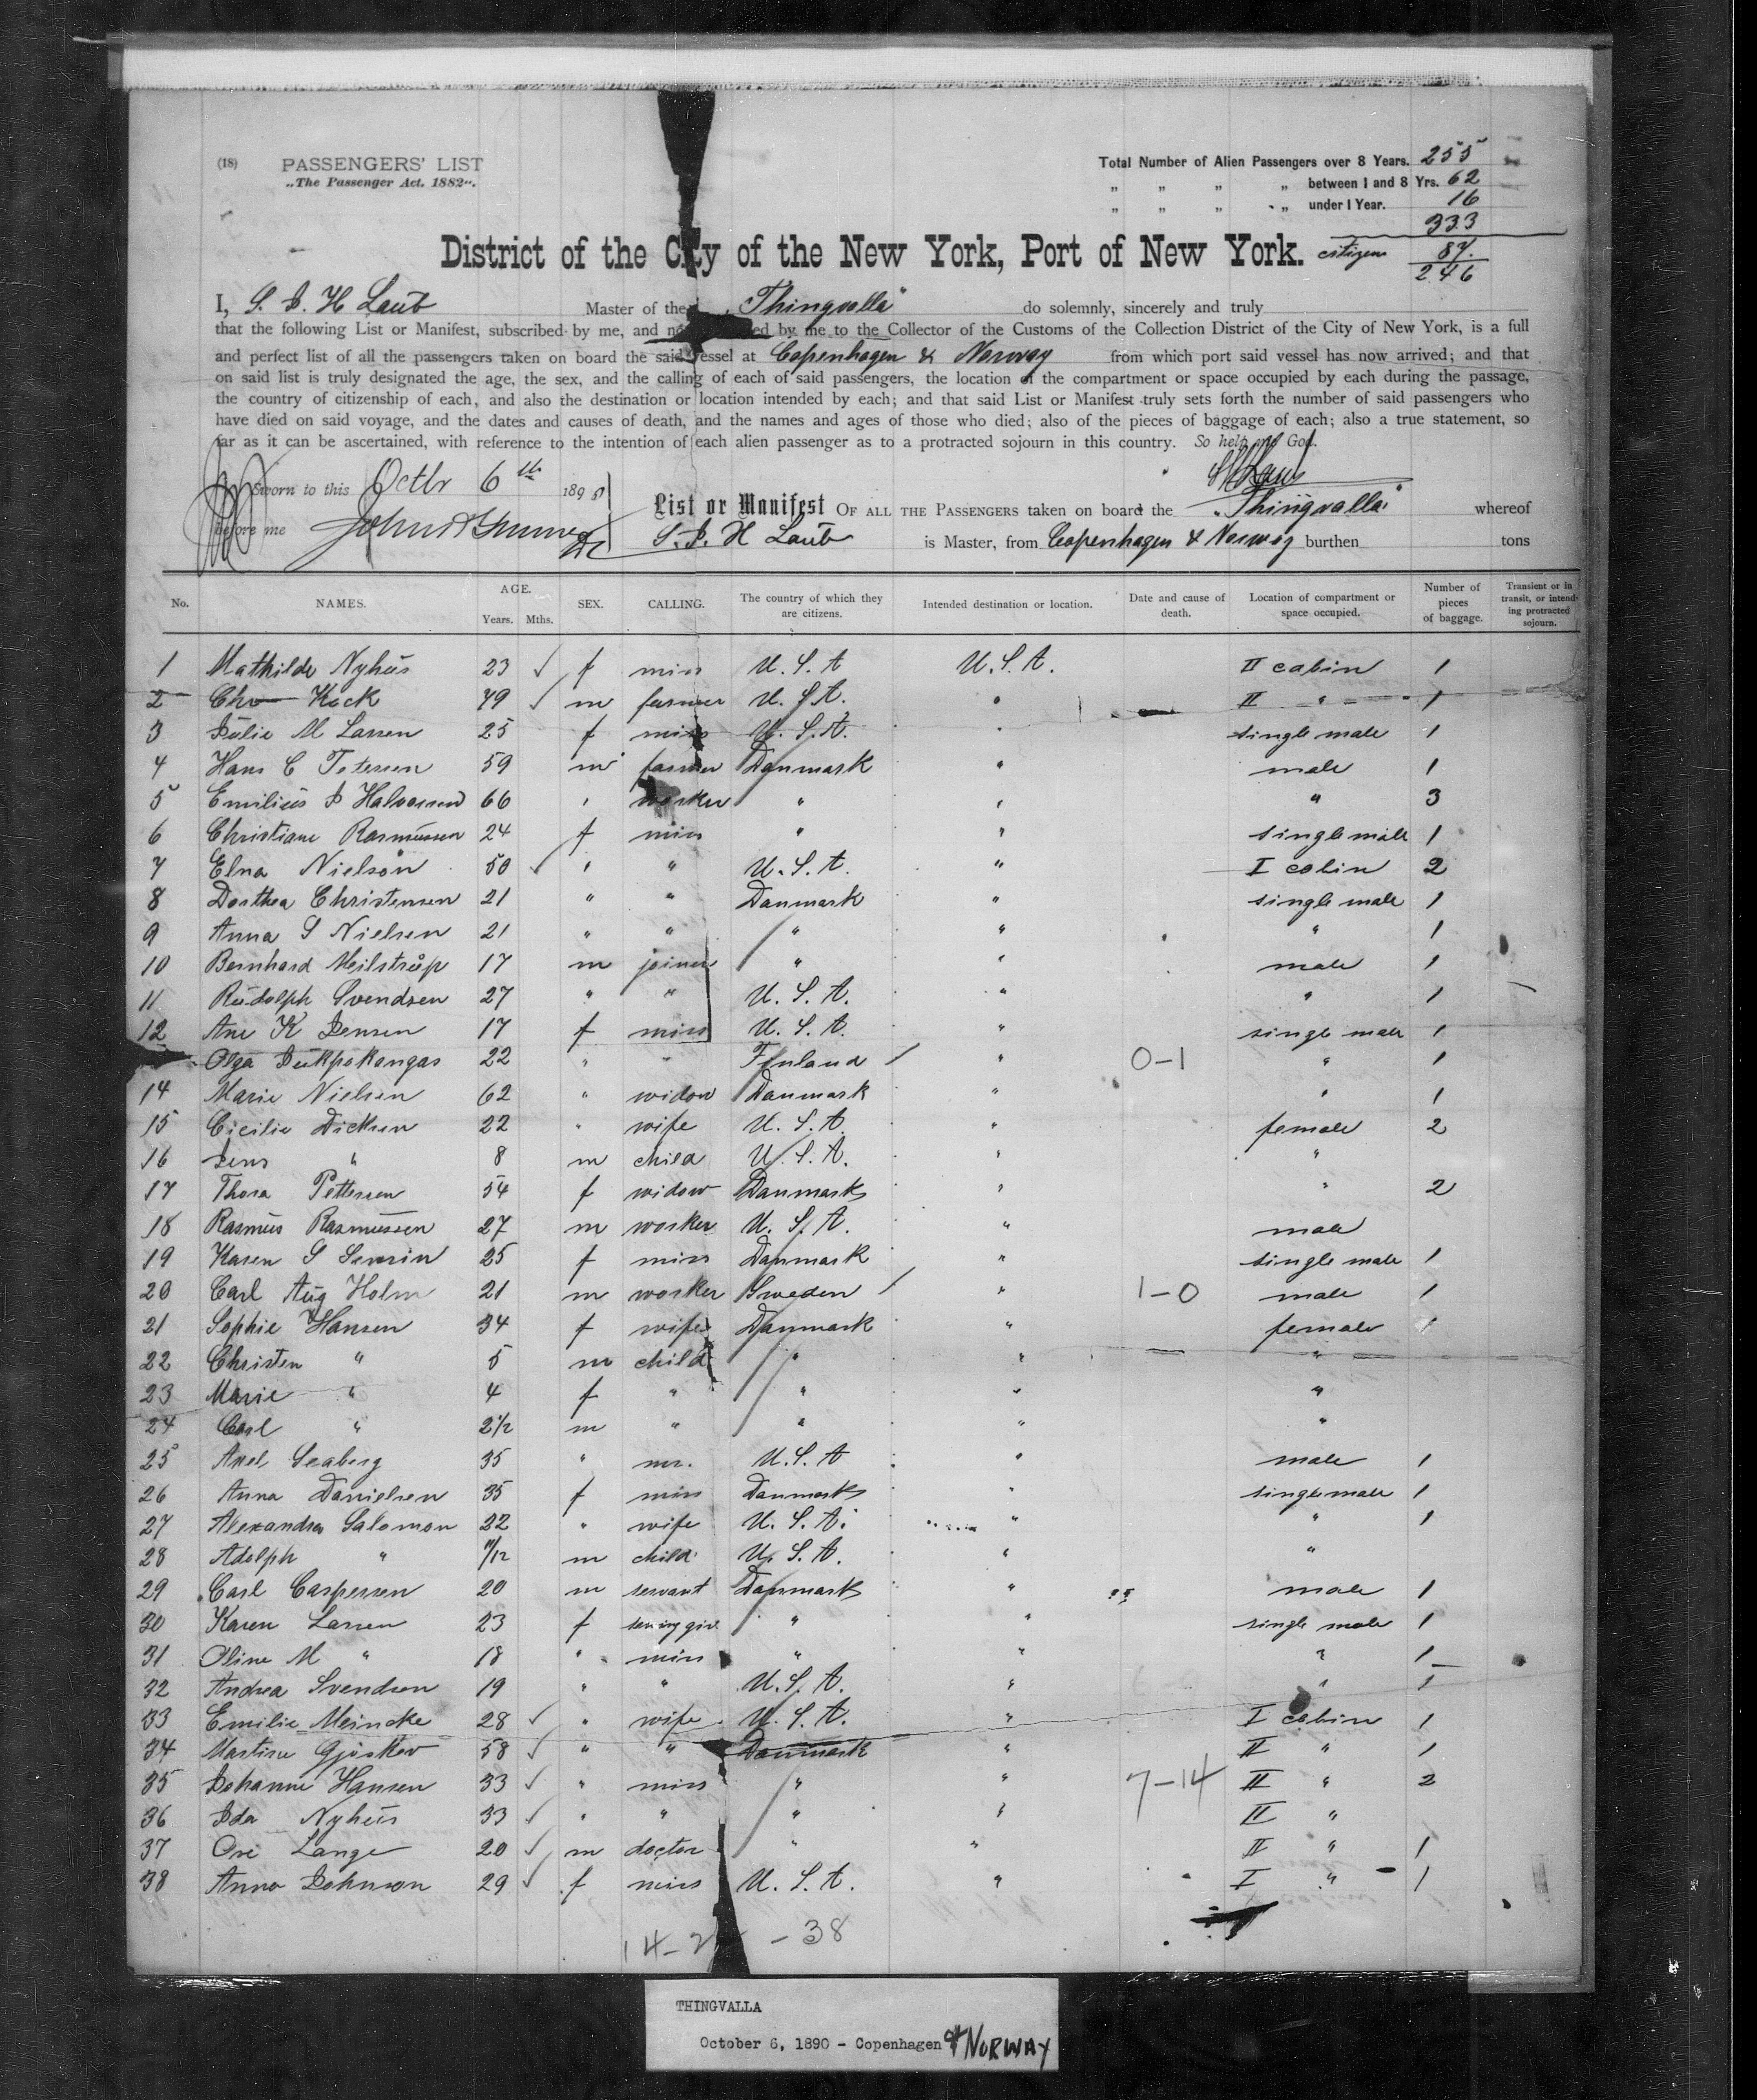 (18) PASSENGERS' LIST
„The Passenger Act. 1882".
Total Number of Alien Passengers over 8 Years. 255
„ „ „ „ between 1 and 8 Yrs. 62
„ „ „ „ under 1 Year. 16
333
District of the City of the New York, Port of New York. citizen 87.
246
I, S. J. H Laub Master of the „Thingvalla" do solemnly, sincerely and truly
that the following List or Manifest, subscribed by me, and by me to the Collector of the Customs of the Collection District of the City of New York, is a full
and perfect list of all the passengers taken on board the said vessel at Copenhagen & Norway from which port said vessel has now arrived; and that
on said list is truly designated the age, the sex, and the calling of each of said passengers, the location of the compartment or space occupied by each during the passage,
the country of citizenship of each, and also the destination or location intended by each; and that said List or Manifest truly sets forth the number of said passengers who
have died on said voyage, and the dates and causes of death, and the names and ages of those who died; also of the pieces of baggage of each; also a true statement, so
far as it can be ascertained, with reference to the intention of each alien passenger as to a protracted sojourn in this country. So help me God.
Sworn to this Octbr 6th 1890
List or Manifest OF ALL THE PASSENGERS taken on board the „Thingvalla" whereof
before me S. J. H Laub is Master, from Copenhagen & Norway burthen tons
No. NAMES. AGE. Years. Mths. SEX. CALLING. The country of which they are citizens. Intended destination or location. Date and cause of death. Location of compartment or space occupied. Number of pieces of baggage. Transient or in transit, or intending protracted sojourn.
1 Mathilde Nyhus 23 ✓ f miss U. S. A U. S. A. II cabin 1
2 Chr Kock 49 ✓ m farmer U. S. A. " II " 1
3 Julie M Larsen 25 f miss U. S. A. " single male 1
4 Hans C Petersen 59 m farmer Danmark " male 1
5 Emilius J Halvorsen 66 " worker " " " 3
6 Christiane Rasmussen 24 f miss " " single male 1
7 Elna Nielson 50 ✓ " " U. S. A. " I cabin 2
8 Dorthea Christensen 21 " " Danmark " single male 1
9 Anna S Nielsen 21 " " " " " 1
10 Bernhard Meilstrup 17 m joiner " " male 1
11 Rudolph Svendsen 27 " " U. S. A. " " 1
12 Ane K Jensen 17 f miss U. S. A. " single male 1
Olga 22 " " Finland " 0-1 " 1
14 Marie Nielsen 62 " widow Danmark " " 1
15 Cicilie Dicksen 22 " wife U. S. A. " female 2
16 Jens " 8 m child U. S. A. " "
17 Thora Pettersen 54 f widow Danmark " " 2
18 Rasmus Rasmussen 27 m worker U. S. A. " male
19 Karen S Severin 25 f miss Danmark " single male 1
20 Carl Aug Holm 21 m worker Sweden " 1-0 male 1
21 Sophie Hansen 34 f wife Danmark " female 1
22 Christen " 5 m child " " "
23 Marie " 4 f " " " "
24 Carl " 2 1/2 m " " " "
25 Axel Seaberg 35 " mr. U. S. A " male 1
26 Anna Danielsen 35 f miss Danmark " single male 1
27 Alexandra Salomon 22 " wife U. S. A. " " 1
28 Adolph " 11/12 m child U. S. A. " "
29 Carl Caspersen 20 m servant Danmark " male 1
30 Karen Larsen 23 f " " single male 1
31 Oline M " 18 " miss " " " 1
32 Andrea Svendsen 19 " " U. S. A. " " 1
33 Emilie Meincke 28 ✓ " wife U. S. A. " I cabin 1
34 Martine 58 ✓ " " Danmark " II " 1
35 Johanne Hansen 33 ✓ " miss " " 7-14 II " 2
36 Ida Nyhus 33 ✓ " " " " II "
37 Lange 20 ✓ m doctor " " II " 1
38 Anna Johnson 29 ✓ f miss U. S. A. " I " 1
14-2 - 38
THINGVALLA
October 6, 1890 - Copenhagen & NORWAY